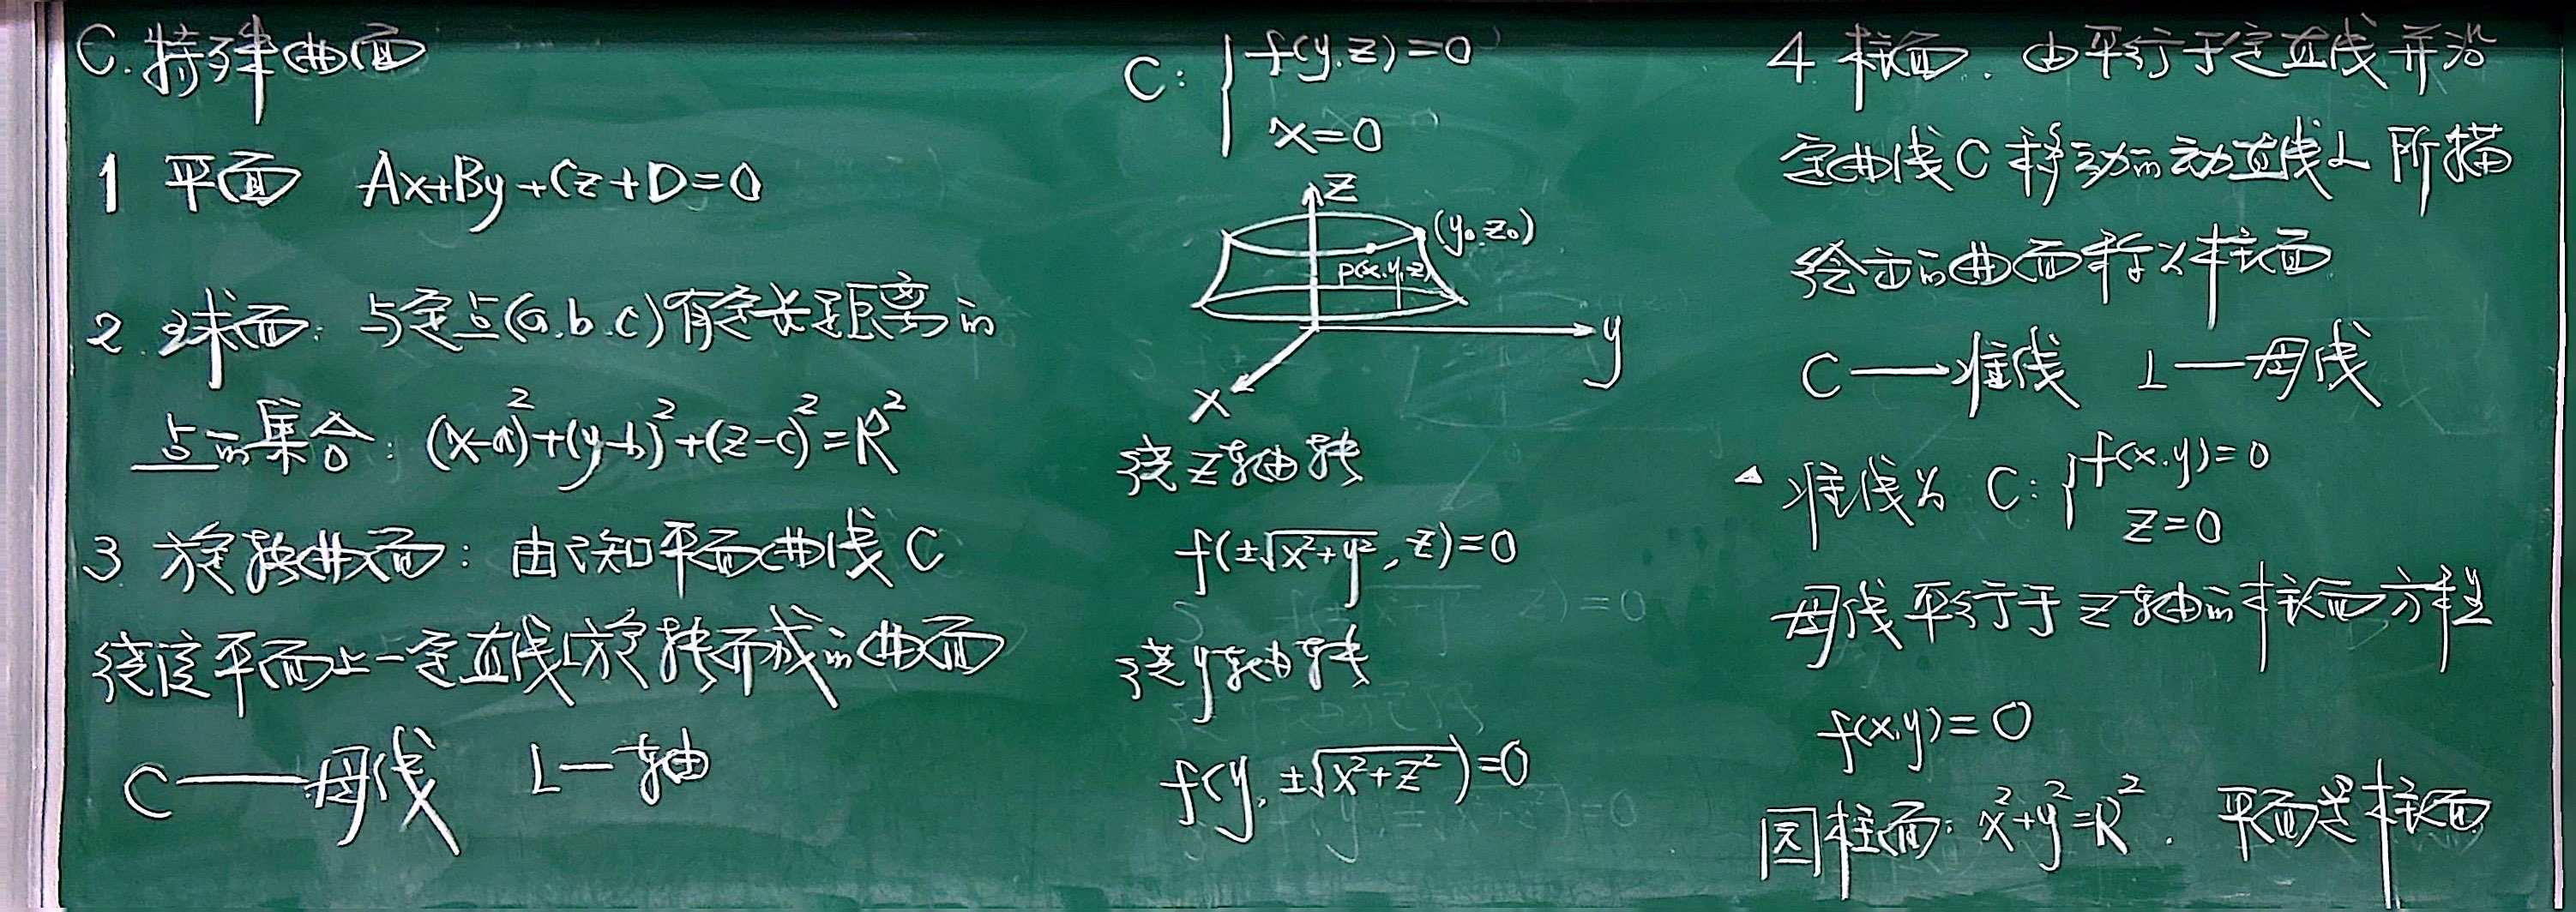 C. 特殊曲面
1 平面 Ax+By+Cz+D=0
2. 球面: 与定点(a.b.c)有定长距离的
点的集合: (x-a)²+(y-b)²+(z-c)²=R²
3 旋转曲面: 由已知平面曲线C
绕该平面上一定直线L旋转而成的曲面
C——母线 L—轴
C: { f(y,z)=0
x=0
z
(y₀.z₀)
P(x.y.z)
y
x
绕z轴转
f(±√x²+y², z)=0
绕y轴转
f(y, ±√x²+z²)=0
4 柱面. 由平行于定直线并沿
定曲线C移动的动直线L所描
绘出的曲面称为柱面
C——准线 L—母线
▲ 准线为 C: { f(x.y)=0
z=0
母线平行于z轴的柱面方程
f(x,y)=0
圆柱面: x²+y²=R². 平面是柱面